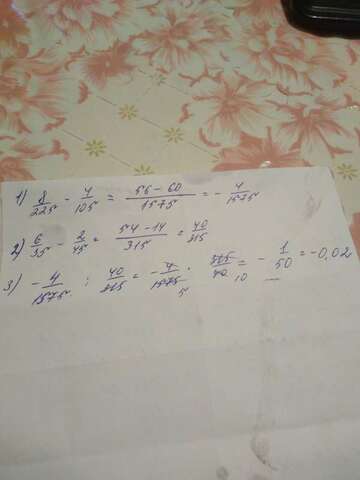 1) 8/225 - 4/105 = 56-60/1575 = - 4/1575
2) 6/35 - 2/45 = 54-14/315 = 40/315
3) - 4/1575 : 40/315 = - 4/1575 5 · 315/40 10 = - 1/50 = -0,02